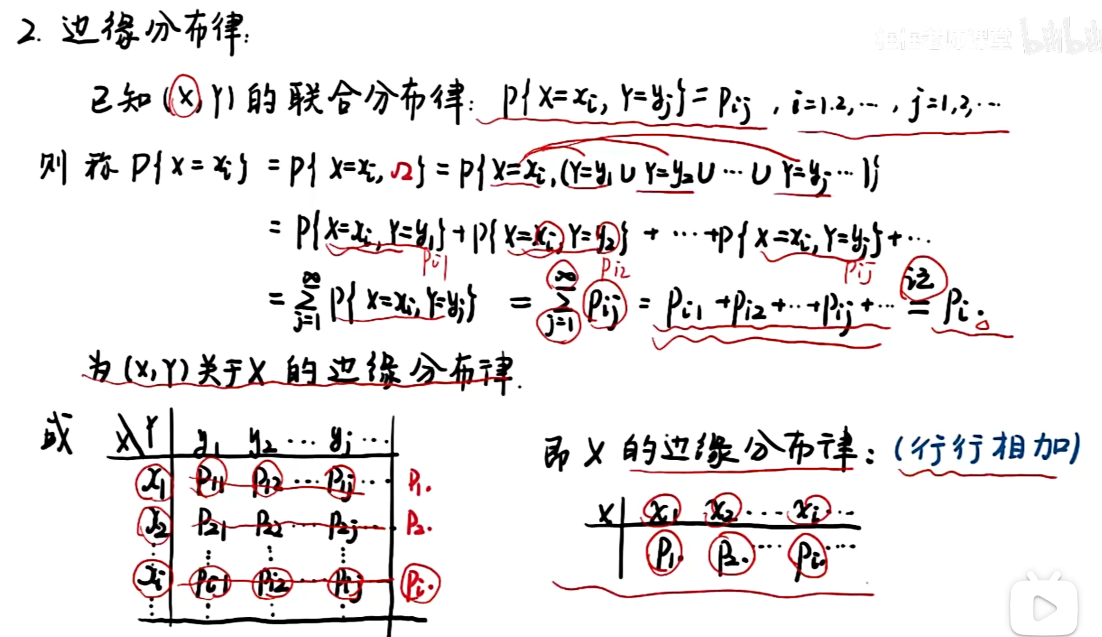 2. 边缘分布律:
bilibili
已知(X,Y)的联合分布律: P{X=xi, Y=yj}=Pij , i=1.2,…, j=1,2,…
则称 P{X=xi} = P{X=xi, Ω} = P{X=xi, (Y=y1 ∪ Y=y2 ∪ … ∪ Y=yj …)}
= P{X=xi, Y=y1} + P{X=xi, Y=y2} + … + P{X=xi, Y=yj} + …
Pi1 Pi2 Pij
= ∑_{j=1}^{∞} P{X=xi, Y=yj} = ∑_{j=1}^{∞} Pij = Pi1 + Pi2 + … + Pij + … 记= Pi.
为(X,Y)关于X的边缘分布律.
或
X Y y1 y2 … yj …
x1 P11 P12 … P1j … P1.
x2 P21 P22 … P2j … P2.
⋮ ⋮ ⋮ ⋮
xi Pi1 Pi2 … Pij Pi.
⋮ ⋮ ⋮ ⋮
即X的边缘分布律: (行行相加)
X x1 x2 … xi …
P1. P2. … Pi. …